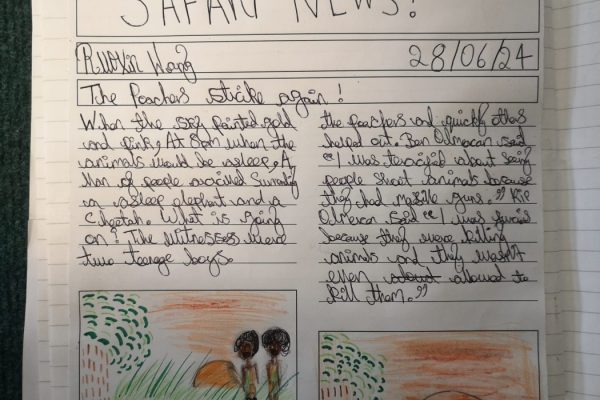 SAFARI NEWS!
Ruoxin Wang
28/06/24
The Poachers strike again!
When the sky painted gold
and pink, At 8pm when the
animals would be asleep, A
of people
an asleep elephant and a
cheetah. What is going
on? The witnesses were
two teenage boys.
the poachers and quickly others
helped out. Ben Olmecan said
"I was terrified about seeing
people shoot animals because
they had massive guns." Kie
Olmecan said "I was
because they were killing
animals and they wasn't
even allowed to
kill them."